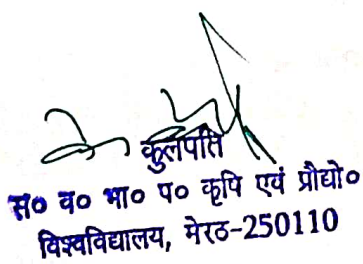 कुलपति
स० व० भा० प० कृषि एवं प्रौद्यो०
विश्वविद्यालय, मेरठ-250110